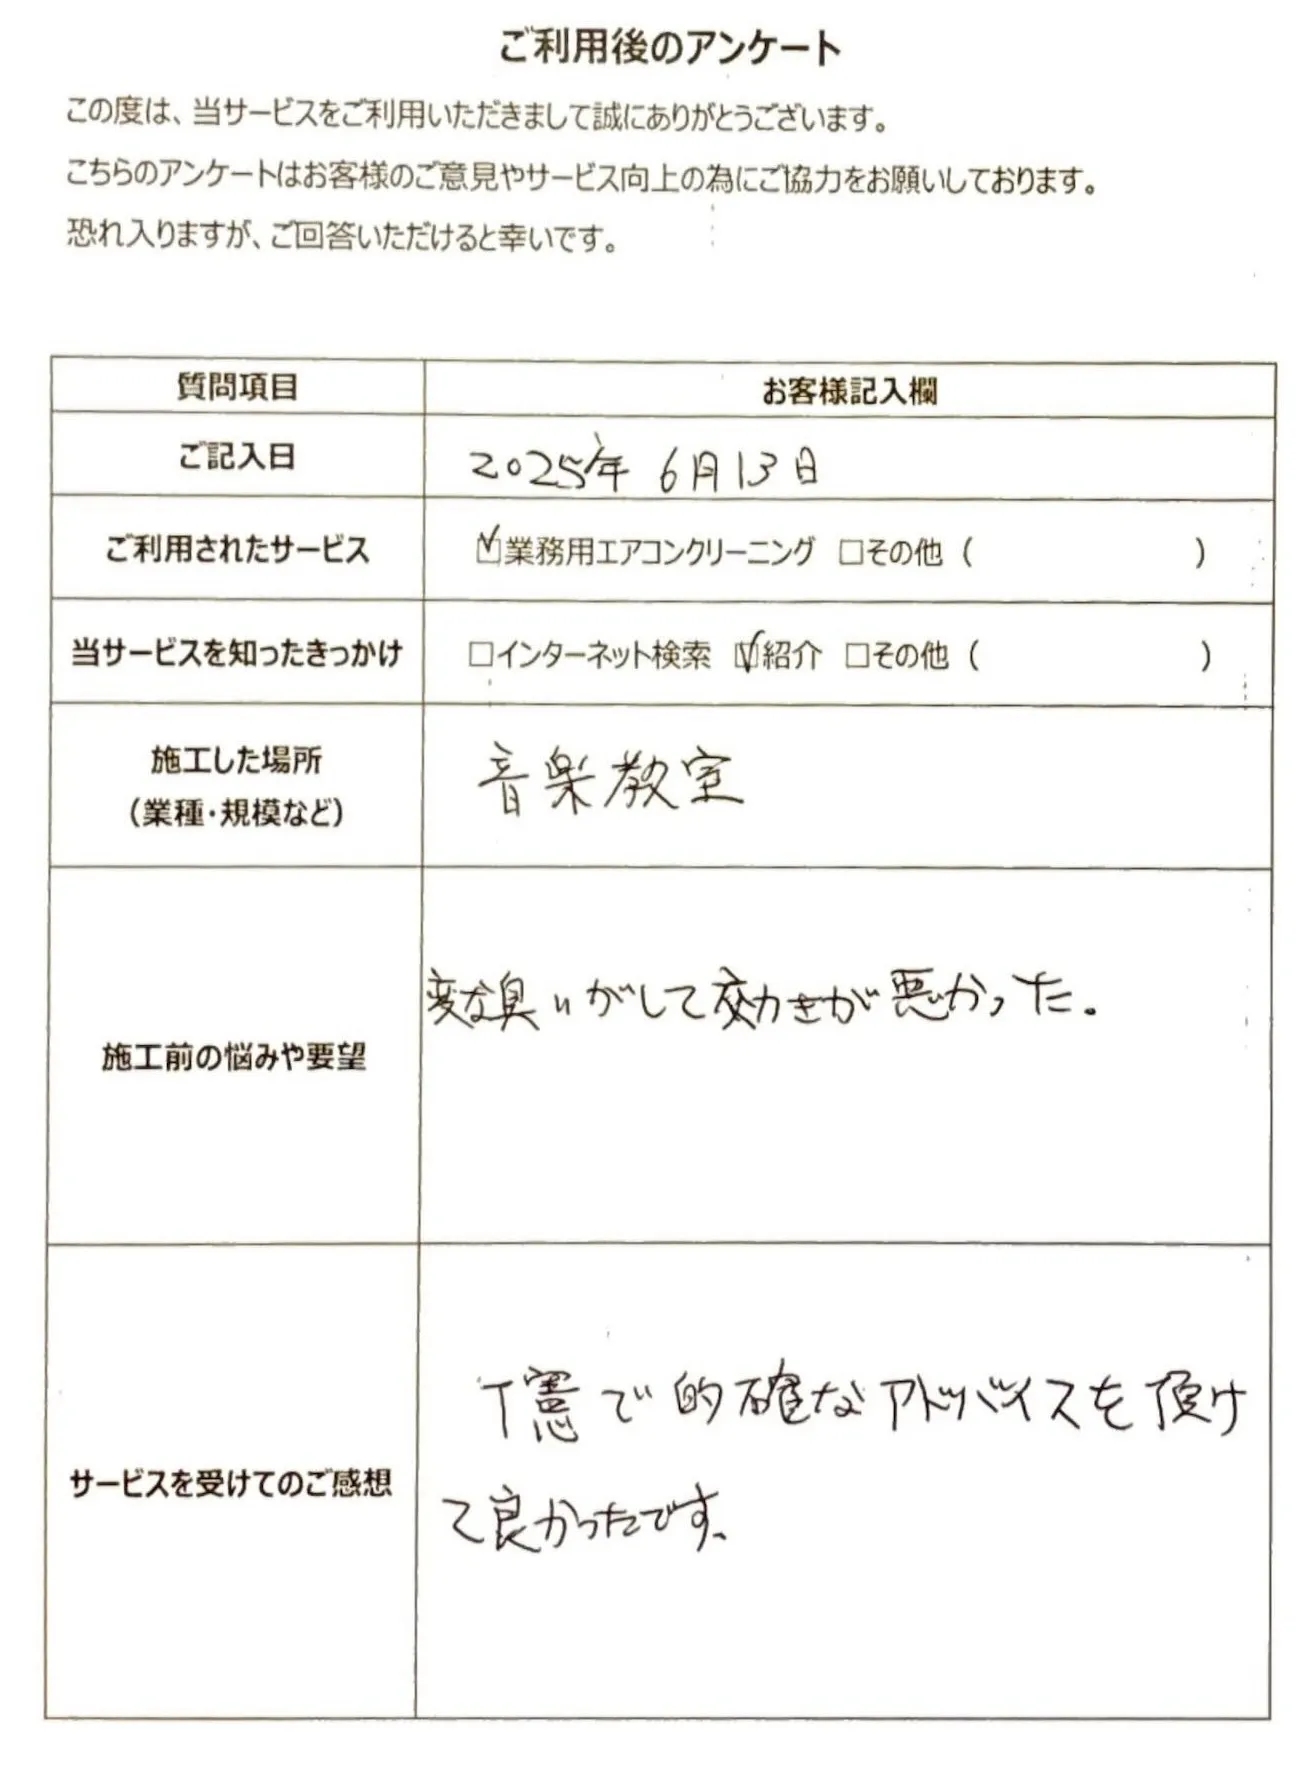 ご利用後のアンケート
この度は、当サービスをご利用いただきまして誠にありがとうございます。
こちらのアンケートはお客様のご意見やサービス向上の為にご協力をお願いしております。
恐れ入りますが、ご回答いただけると幸いです。
質問項目 お客様記入欄
ご記入日 2025年 6月13日
ご利用されたサービス ☑業務用エアコンクリーニング □その他 ( )
当サービスを知ったきっかけ □インターネット検索 ☑紹介 □その他 ( )
施工した場所
(業種・規模など)
音楽教室
施工前の悩みや要望
変な臭いがして効きが悪かった。
サービスを受けてのご感想
丁寧で的確なアドバイスを頂け
て良かったです。